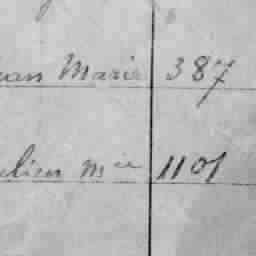 ean Marie 387
elien Mie 1101